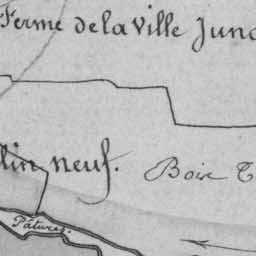 Ferme de la Ville Jun
lin neuf.
Boir
Pâtures.